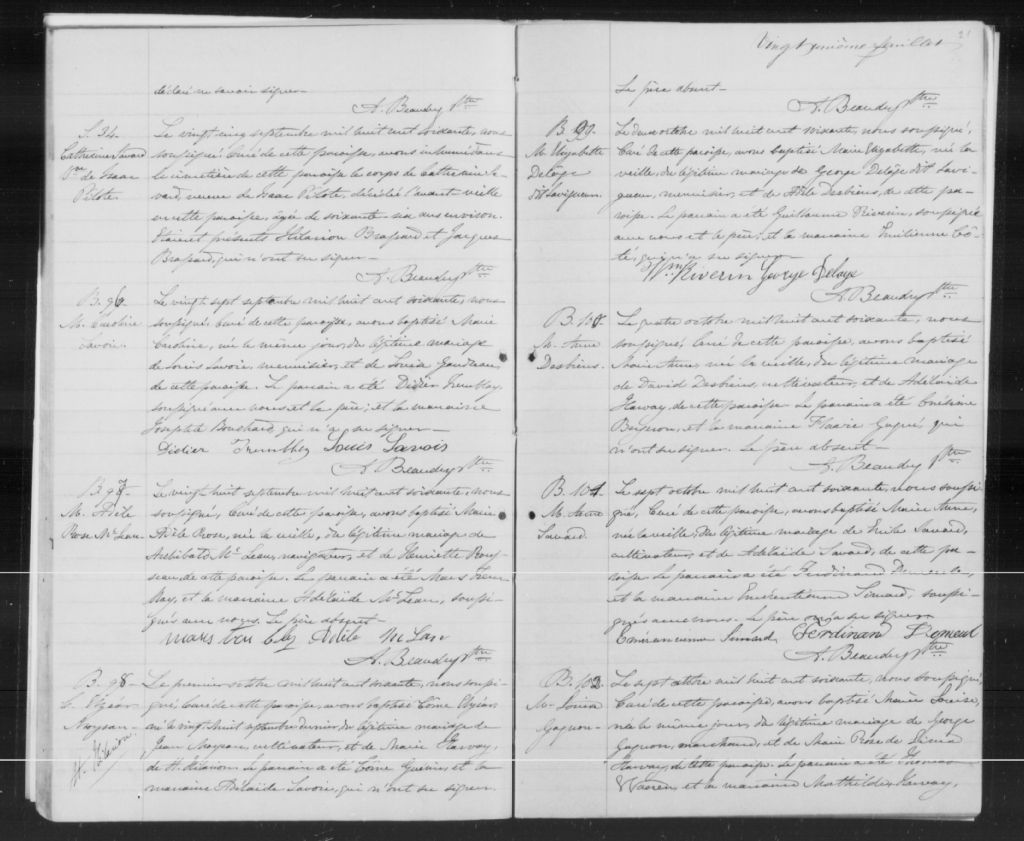 déclaré ne savoir signer—
A. Beaudry Ptre
S. 34.
Catherine Savard
Vve de Isaac
Pilote.
Le vingt cinq septembre mil huit cent soixante, nous
soussigné, Curé de cette paroisse, avons inhumé dans
le cimetière de cette paroisse le corps de Catherine Sa-
vard, veuve de Isaac Pilote, décédée l'avant veille
en cette paroisse, âgée de soixante-six ans environ.
Etaient présents Hilarion Brassard et Jacques
Brassard, qui n'ont su signer—
A. Beaudry Ptre
B. 96.
M. Caroline
Savoie.
Le vingt sept septembre mil huit cent soixante, nous
soussigné, Curé de cette paroisse, avons baptisé Marie
Caroline, née le même jour, du légitime mariage
de Louis Savoie, menuisier, et de Louise Gaudreau
de cette paroisse. Le parrain a été Didier Tremblay,
soussigné avec nous et le père; et la marraine
Josephte Bouchard, qui n'a su signer—
Didier Trembley Louis Savois
A. Beaudry Ptre
B. 97
M. Adèle
Rose McLean
Le vingt huit septembre mil huit cent soixante, nous
soussigné, Curé de cette paroisse, avons baptisé Marie
Adèle Rose, née la veille, du légitime mariage de
Archibald McLean, navigateur, et de Henriette Rous-
seau, de cette paroisse. Le parrain a été Mars Trem-
blay, et la marraine Adélaïde McLean, soussi-
gnés avec nous. Le père absent—
mars
A. Beaudry Ptre
B. 98-
C. Elzéar
H. Hilarion
Le premier octobre mil huit cent soixante, nous soussi-
gné, Curé de cette paroisse, avons baptisé Côme Elzéar,
né le vingt huit septembre dernier, du légitime mariage de
Jean, cultivateur, et de Marie Harvay,
de H. Hilarion. Le parrain a été Côme Guérin, et la
marraine Adélaïde Savoie, qui n'ont su signer.
Vingt unième feuillet
21
Le père absent—
A. Beaudry Ptre
B. 99.
M. Elizabeth
Delâge
dit Lavigueur.
Le deux octobre mil huit cent soixante, nous soussigné,
Curé de cette paroisse, avons baptisé Marie Elizabeth, née la
veille du légitime mariage de George Delâge dit Lavi-
gueur, menuisier, et de Adèle Desbiens, de cette pa-
roisse. Le parrain a été Guillaume Riverin, soussigné
avec nous et le père; et la marraine Emilienne Cô-
té, qui n'a su signer
Wm Riverin George Delage
A. Beaudry Ptre
B. 100.
M. Anne
Desbiens.
Le quatre octobre mil huit cent soixante, nous
soussigné, Curé de cette paroisse, avons baptisé
Marie Anne, née la veille, du légitime mariage
de David Desbiens, cultivateur, et de Adélaïde
Harvay, de cette paroisse. Le parrain a été Onésime
et la marraine Flavie Gagné, qui
n'ont su signer. Le père absent—
A. Beaudry Ptre
B. 101.
M. Anne
Savard.
Le sept octobre mil huit cent soixante, nous soussi-
gné, Curé de cette paroisse, avons baptisé Marie Anne,
née la veille, du légitime mariage de Savard,
cultivateur, et de Adélaïde Savard, de cette pa-
roisse. Le parrain a été Ferdinand
et la marraine Emérentienne Simard, soussi-
gnés avec nous. Le père n'a su signer
Simard, Ferdinand
A. Beaudry Ptre
B. 102.
M. Louise
Gagnon.
Le sept octobre mil huit cent soixante, nous soussigné,
Curé de cette paroisse, avons baptisé Marie Louise,
née le même jour, du légitime mariage de George
Gagnon, marchand, et de Marie Rose de Lima
Harvay, de cette paroisse. Le parrain a été Thomas
Warren, et la marraine Mathilde Harvay,